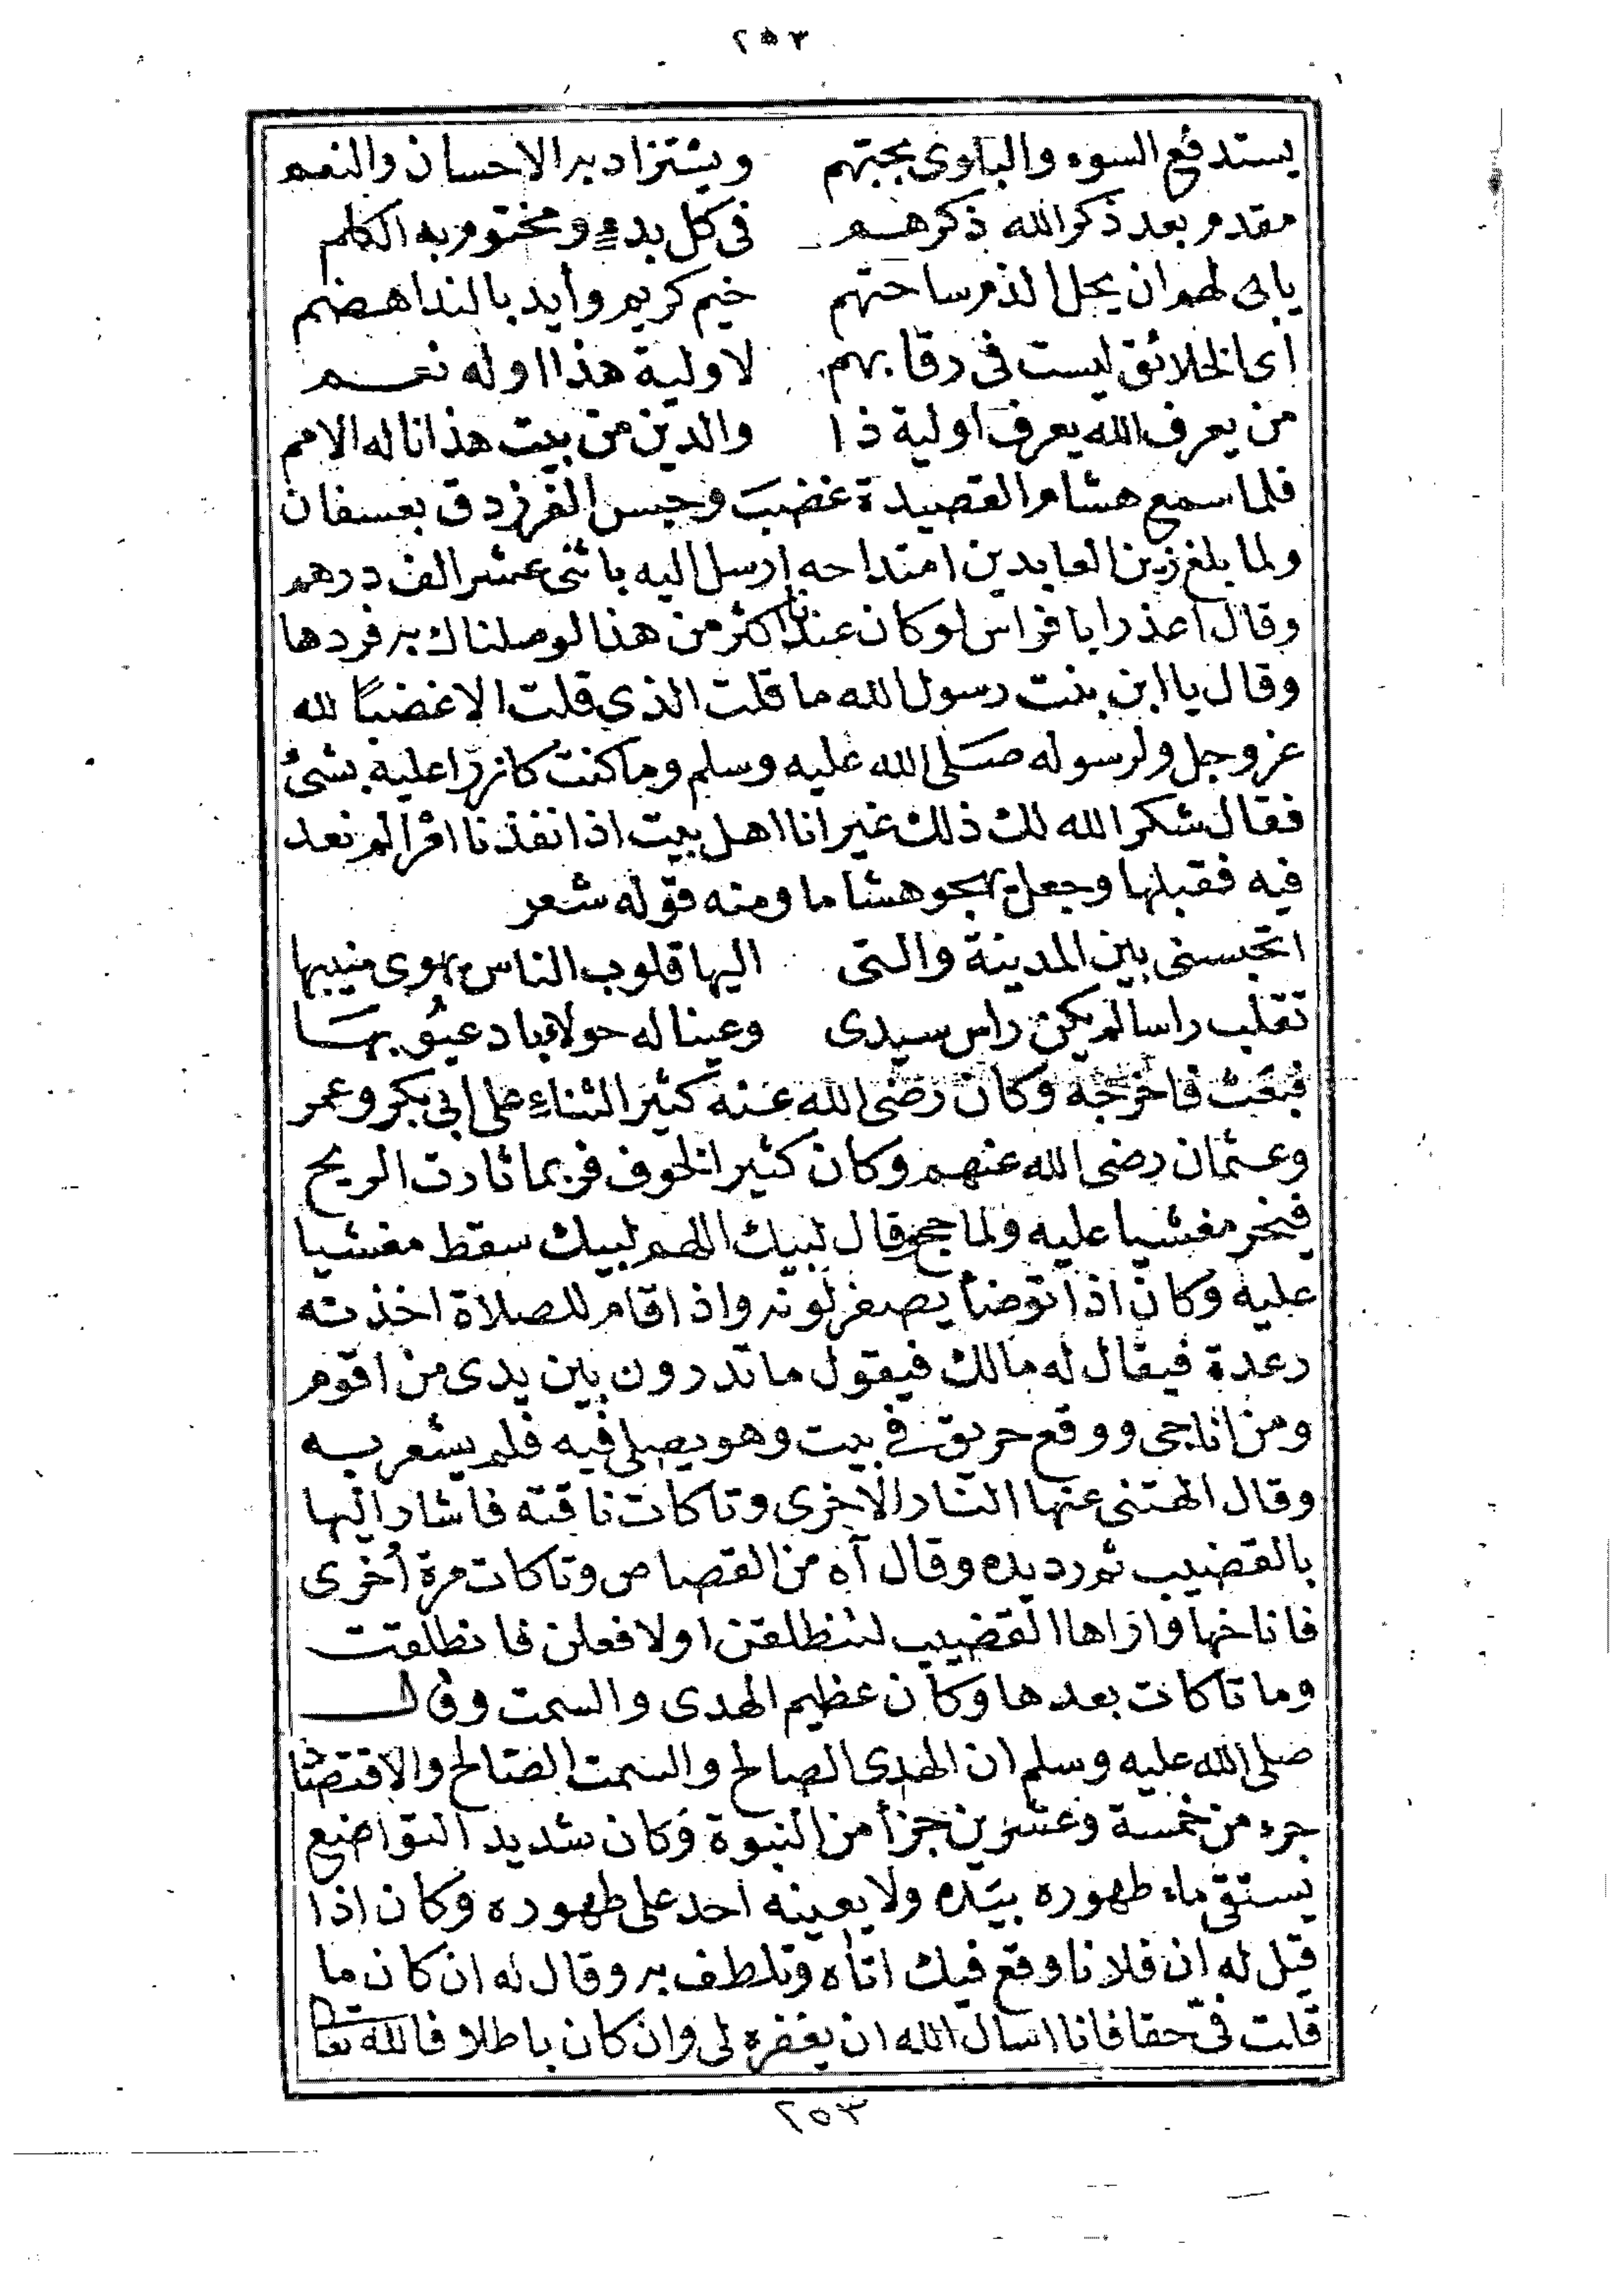 ٢٥٣
يستدفع السوء والبلوى بحبتهم ويستزاد به الاحسان والنعم
مقدم بعد ذكر الله ذكرهم في كل بدء ومختوم به الكلم
يابى لهم ان يحل الذم ساحتهم خيم كريم وأيد بالندا هضم
اى الخلائق ليست في رقابهم لاولية هذا اوله نعم
من يعرف الله يعرف اولية ذا والدين من بيت هذا ناله الامم
فلما سمع هشام القصيدة غضب وحبس الفرزدق بعسفان
ولما بلغ زين العابدين امتداحه ارسل اليه باثنى عشر الف درهم
وقال اعذر ابا فراس لو كان عندنا اكثر من هذا لوصلناك به فردها
وقال يا ابن بنت رسول الله ما قلت الذى قلت الا غضبًا لله
عز وجل ولرسوله صلى الله عليه وسلم وما كنت كانزرّا عليه بشئ
فقال شكر الله لك ذلك غير انا اهل بيت اذا نفذنا امرا لم نعد
فيه فقبلها وجعل يهجو هشاما ومنه قوله شعر
اتحبسنى بين المدينة والتى اليها قلوب الناس يهوى منيبها
تقلب راسا لم يكن راس سيدى وعينا له حولاء باد عيوبها
فبعث فاخرجه وكان رضى الله عنه كثير الثناء على ابى بكر وعمر
وعثمان رضى الله عنهم وكان كثير الخوف فربما ثارت الريح
فيخر مغشيا عليه ولما حج قال لبيك اللهم لبيك سقط مغشيا
عليه وكان اذا توضأ يصفر لونه واذا قام للصلاة اخذته
رعدة فيقال له مالك فيقول ما تدرون بين يدى من اقوم
ومن اناجى ووقع حريق في بيت وهو يصلى فيه فلم يشعر به
وقال الهتنى عنها النار الاخرى وتلكات ناقته فاشار اليها
بالقضيب ثم رد يده وقال آه من القصاص وتلكات مرة أخرى
فاناخها واراها القضيب لتنطلقن اولا فعلن فانطلقت
وما تلكات بعدها وكان عظيم الهدى والسمت وقال
صلى الله عليه وسلم ان الهدى الصالح والسمت الصالح والاقتصاد
جزء من خمسة وعشرين جزأ من النبوة وكان شديد التواضع
يستقى ماء طهوره بيده ولا يعينه احد على طهوره وكان اذا
قيل له ان فلانا وقع فيك اتاه وتلطف به وقال له ان كان ما
قلت فىّ حقا فانا اسال الله ان يغفره لى وان كان باطلا فالله تعا
٢٥٣